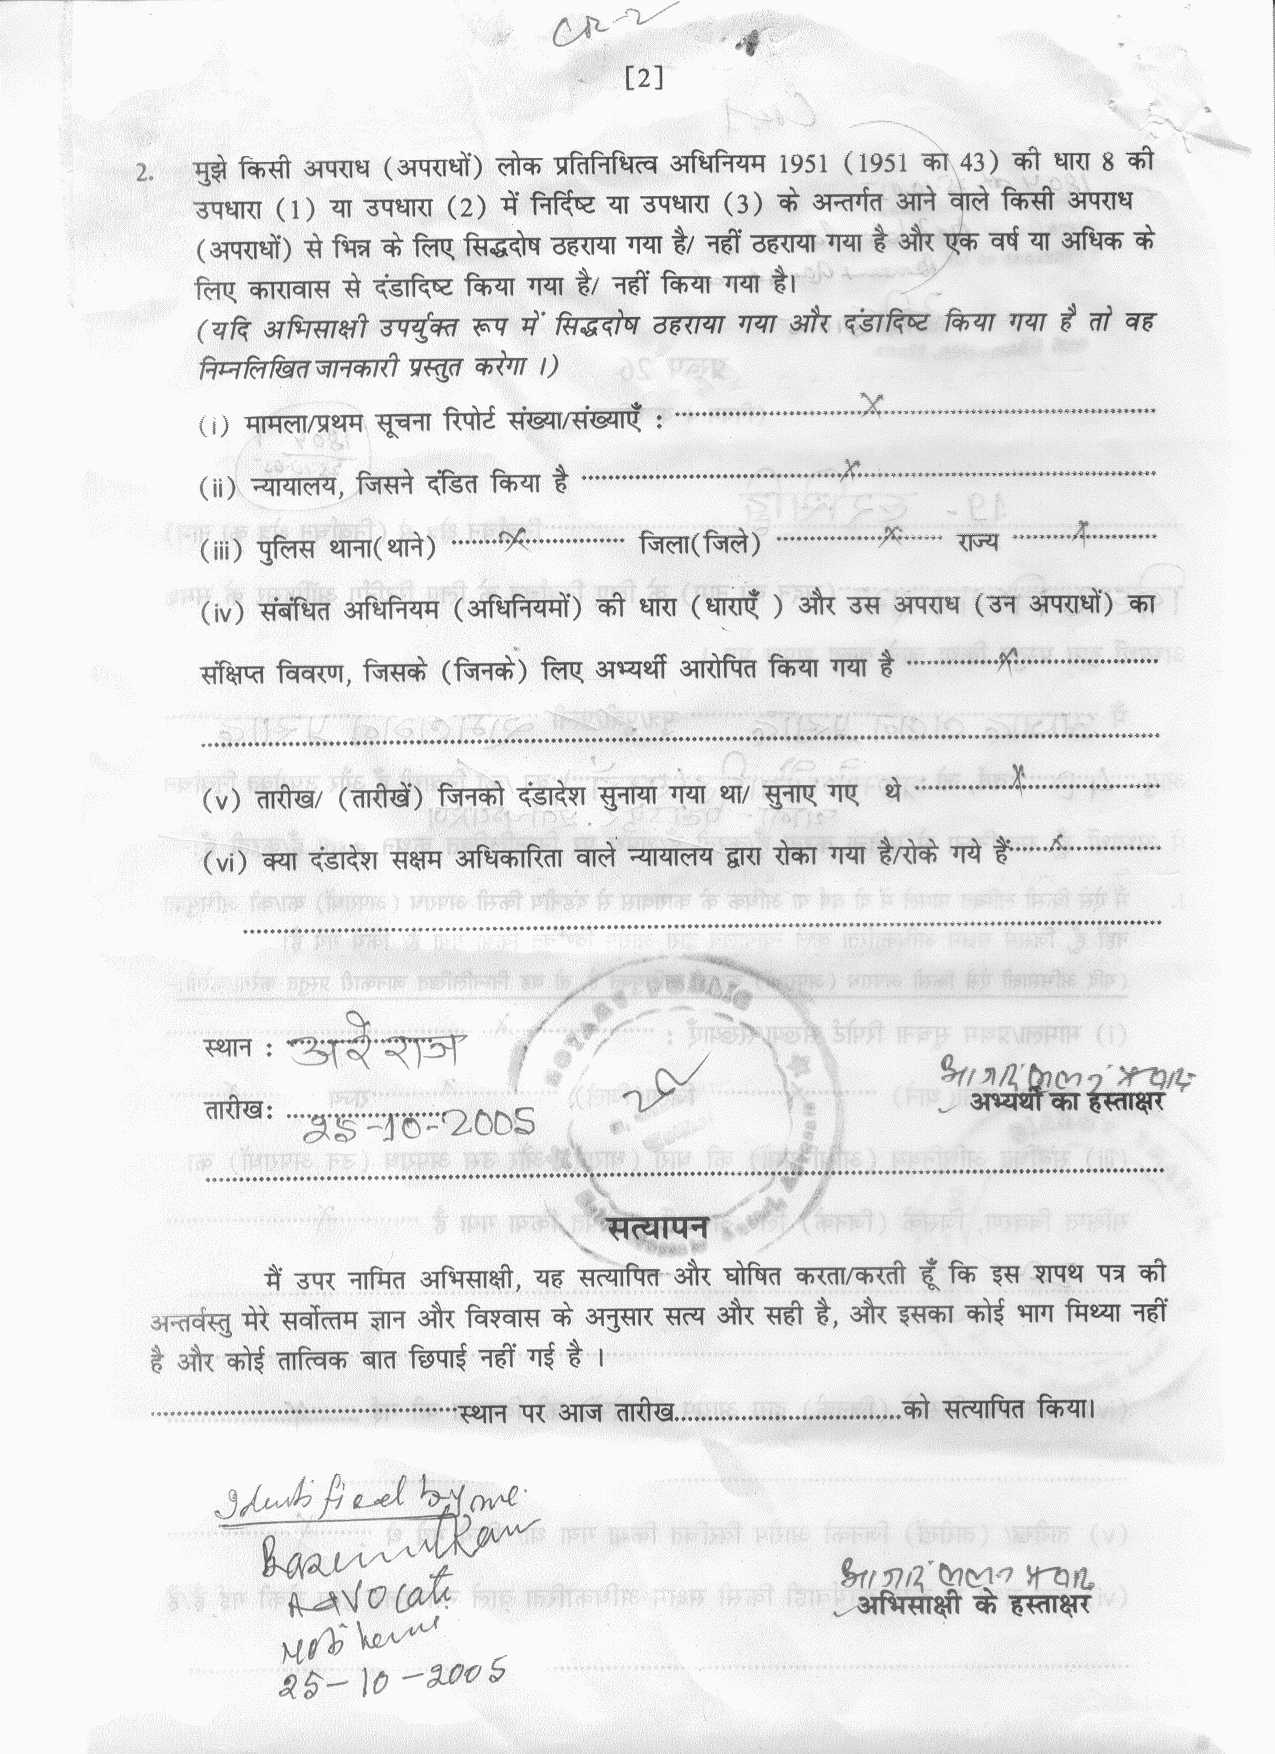 CR-2
[2]
2. मुझे किसी अपराध (अपराधों) लोक प्रतिनिधित्व अधिनियम 1951 (1951 का 43) की धारा 8 की
उपधारा (1) या उपधारा (2) में निर्दिष्ट या उपधारा (3) के अन्तर्गत आने वाले किसी अपराध
(अपराधों) से भिन्न के लिए सिद्धदोष ठहराया गया है/ नहीं ठहराया गया है और एक वर्ष या अधिक के
लिए कारावास से दंडादिष्ट किया गया है/ नहीं किया गया है।
(यदि अभिसाक्षी उपर्युक्त रूप में सिद्धदोष ठहराया गया और दंडादिष्ट किया गया है तो वह
निम्नलिखित जानकारी प्रस्तुत करेगा ।)
(i) मामला/प्रथम सूचना रिपोर्ट संख्या/संख्याएँ : .......... X ..........
(ii) न्यायालय, जिसने दंडित किया है .......... X ..........
(iii) पुलिस थाना(थाने) ..... X ..... जिला(जिले) ..... X ..... राज्य ..... X .....
(iv) संबंधित अधिनियम (अधिनियमों) की धारा (धाराएँ ) और उस अपराध (उन अपराधों) का
संक्षिप्त विवरण, जिसके (जिनके) लिए अभ्यर्थी आरोपित किया गया है ..... X .....
(v) तारीख/ (तारीखें) जिनको दंडादेश सुनाया गया था/ सुनाए गए थे ..... X .....
(vi) क्या दंडादेश सक्षम अधिकारिता वाले न्यायालय द्वारा रोका गया है/रोके गये हैं ..... X .....
स्थान : अरेराज
तारीख: 25-10-2005
अभ्यर्थी का हस्ताक्षर
सत्यापन
मैं उपर नामित अभिसाक्षी, यह सत्यापित और घोषित करता/करती हूँ कि इस शपथ पत्र की
अन्तर्वस्तु मेरे सर्वोत्तम ज्ञान और विश्वास के अनुसार सत्य और सही है, और इसका कोई भाग मिथ्या नहीं
है और कोई तात्विक बात छिपाई नहीं गई है ।
..........स्थान पर आज तारीख..........को सत्यापित किया।
Identified by me.
Advocate
25-10-2005
अभिसाक्षी के हस्ताक्षर